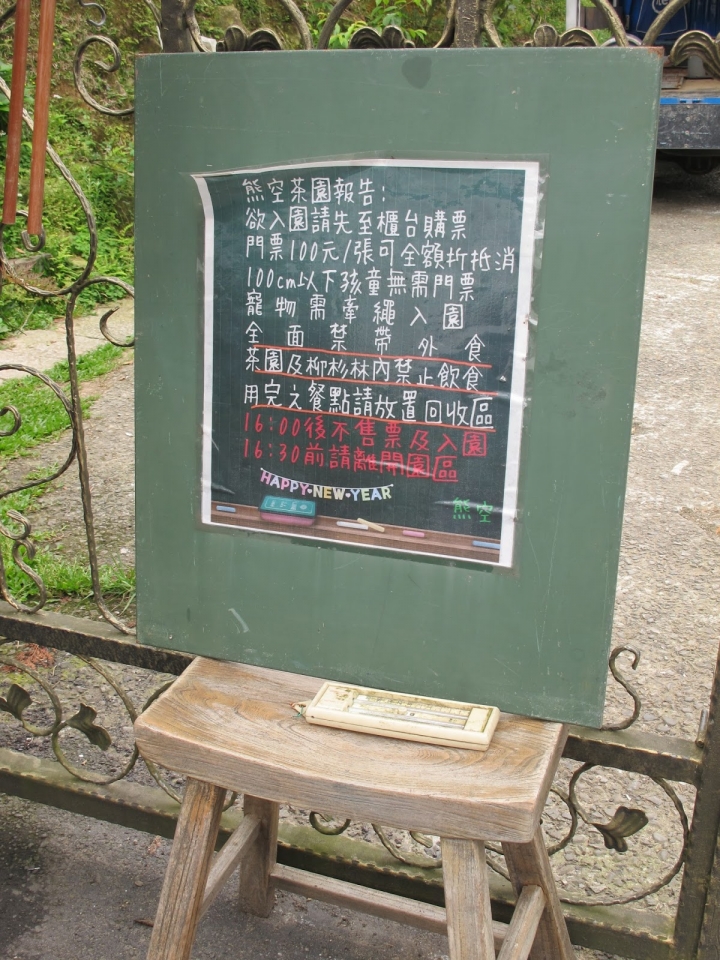 熊空茶園報告:
欲入園請先至櫃台購票
門票100元/張可全額折抵消
100cm以下孩童無需門票
寵物需牽繩入園
全面禁帶外食
茶園及柳杉林內禁止飲食
用完之餐點請放置回收區
16:00後不售票及入園
16:30前請離開園區
HAPPY·NEW·YEAR
熊空